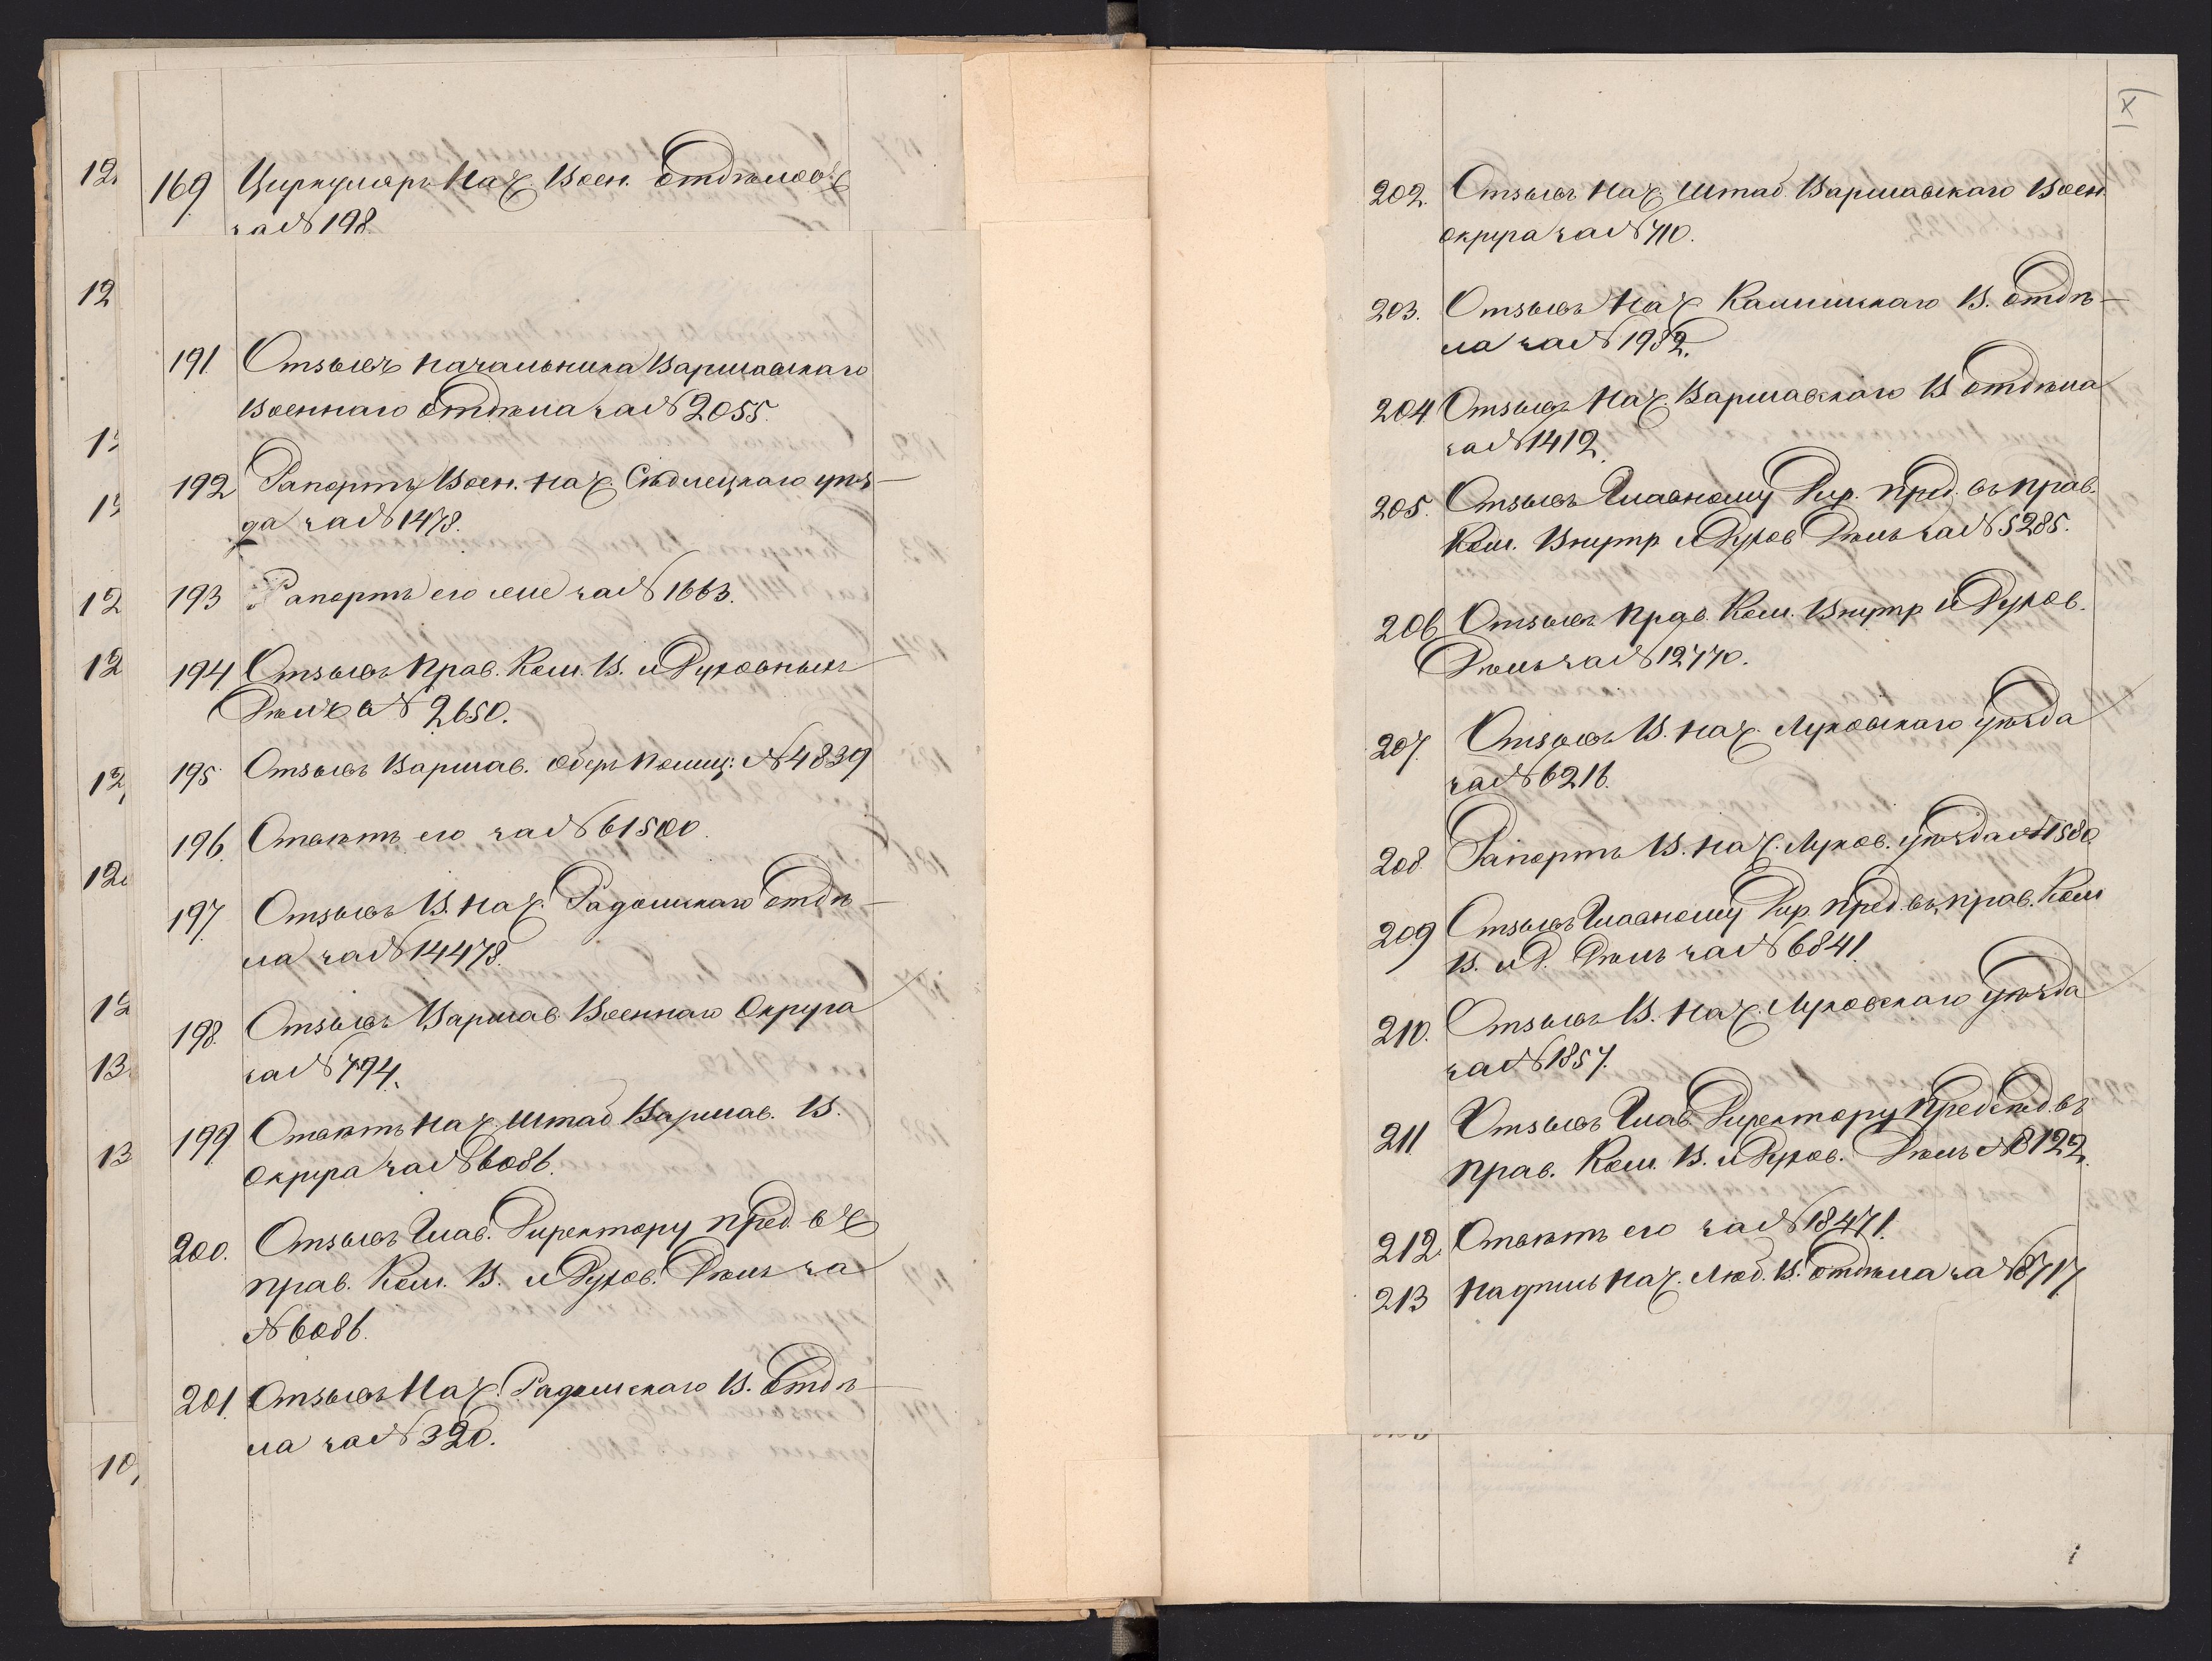 12
169 Циркуляръ Нач. Воен. Отделовъ
за № 198.
12
191 Отзывъ Начальника Варшавскаго
Военнаго Отдѣла за № 2055.
192 Рапортъ Воен. Нач. Сѣдлецкаго уѣз-
да за № 1478.
12
193 Рапортъ его же за № 1663.
12
194 Отзывъ Прав. Ком. В. и Духовныхъ
Дѣлъ № 2650.
12
195 Отзывъ Варшав. Оберъ Полиц: № 4839
196. Отвѣтъ его за № 61500.
12
197 Отзывъ В. Нач. Радомскаго Отдѣ-
ла за № 14478.
12
198. Отзывъ Варшав. Военнаго Округа
за № 794.
13
199 Отвѣтъ Нач. Штаб Варшав. В.
Округа за № 6086.
13
200. Отзывъ Глав. Директору Пред. въ
Прав. Ком. В. и Духов. Дѣлъ за
№ 6086.
201. Отзывъ Нач. Радомскаго В. Отдѣ-
ла за № 320.
10
X
202. Отзывъ Нач. Штаб. Варшавскаго Воен.
Округа за № 710.
203. Отзывъ Нач. Калишскаго В. Отдѣ-
ла за № 1982.
204 Отзывъ Нач. Варшавскаго В Отдѣла
за № 1412.
205. Отзывъ Главному Дир. Пред. въ Прав.
Ком. Внутр и Духов Дѣлъ за № 5285.
206 Отзывъ Прав. Ком. Внутр и Духов.
Дѣлъ за № 12770.
207. Отзывъ В. Нач. Луковскаго уѣзда
за № 6216.
208. Рапортъ В. Нач. Луков. уѣзда № 1580
209 Отзывъ Главному Дир. Пред. въ Прав. Ком
В. и Д. Дѣлъ за № 6841.
210. Отзывъ В. Нач. Луковскаго уѣзда
за № 1857.
211 Отзывъ Глав Директору Предсѣд. въ
Прав. Ком. В. и Духов. Дѣлъ № 8122.
212. Отвѣтъ его за № 18471.
213 Надпись Нач. Люб. В. Отдѣла за № 8717